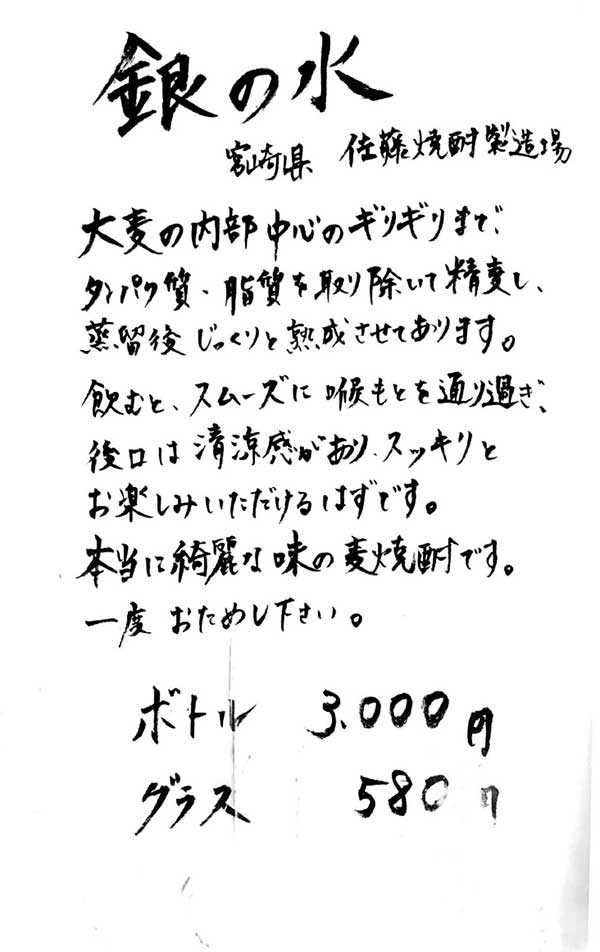 銀の水
宮崎県 佐藤焼酎製造場
大麦の内部中心のギリギリまで、
タンパク質・脂質を取り除いて精麦し、
蒸留後じっくりと熟成させてあります。
飲むと、スムーズに喉もとを通り過ぎ、
後口は清涼感があり、スッキリと
お楽しみいただけるはずです。
本当に綺麗な味の麦焼酎です。
一度おためし下さい。
ボトル 3,000円
グラス 580円